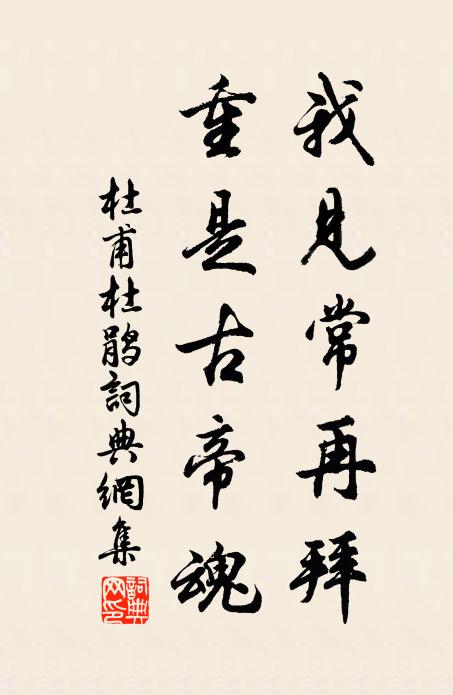 我見常再拜
重是古帝魂
杜甫杜鵑詞典網集
詞典網印